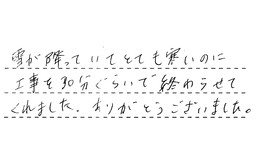 雪が降っていてとても寒いのに
工事を30分ぐらいで終わらせて
くれました。ありがとうございました。